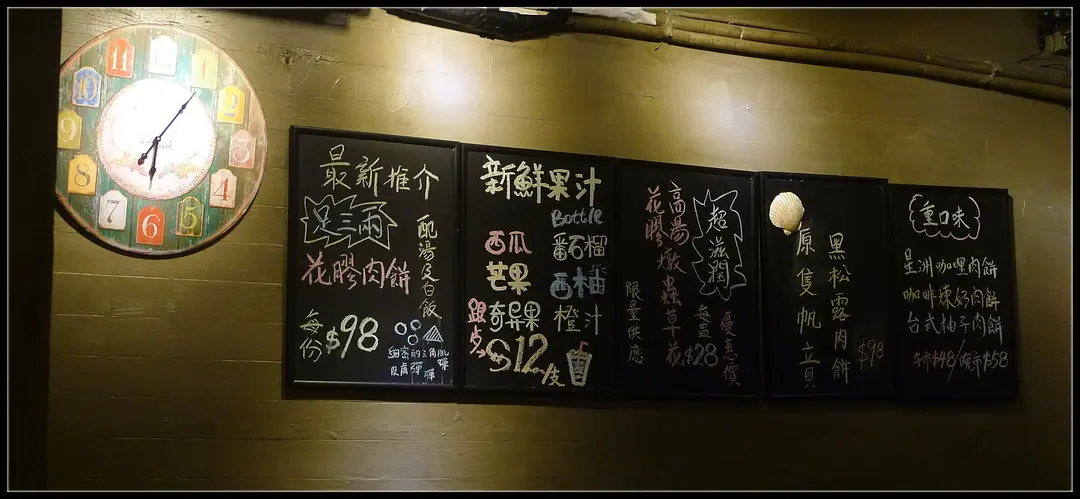 11
12
1
10
2
9
3
8
4
7
6
5
最新推介
足三兩
花膠肉餅
配湯及白飯
每份$98
新鮮果汁
Bottle
西瓜
番石榴
芒果
西柚
奇異果
橙汁
跟餐
$12/支
高湯
花膠燉蟲草花
超滋潤
每盅$28
優惠價
限量供應
黑松露肉餅
原隻帆立貝
$98
重口味
星洲咖哩肉餅
咖啡煉奶肉餅
台式柚子肉餅
午市$48/晚市$58